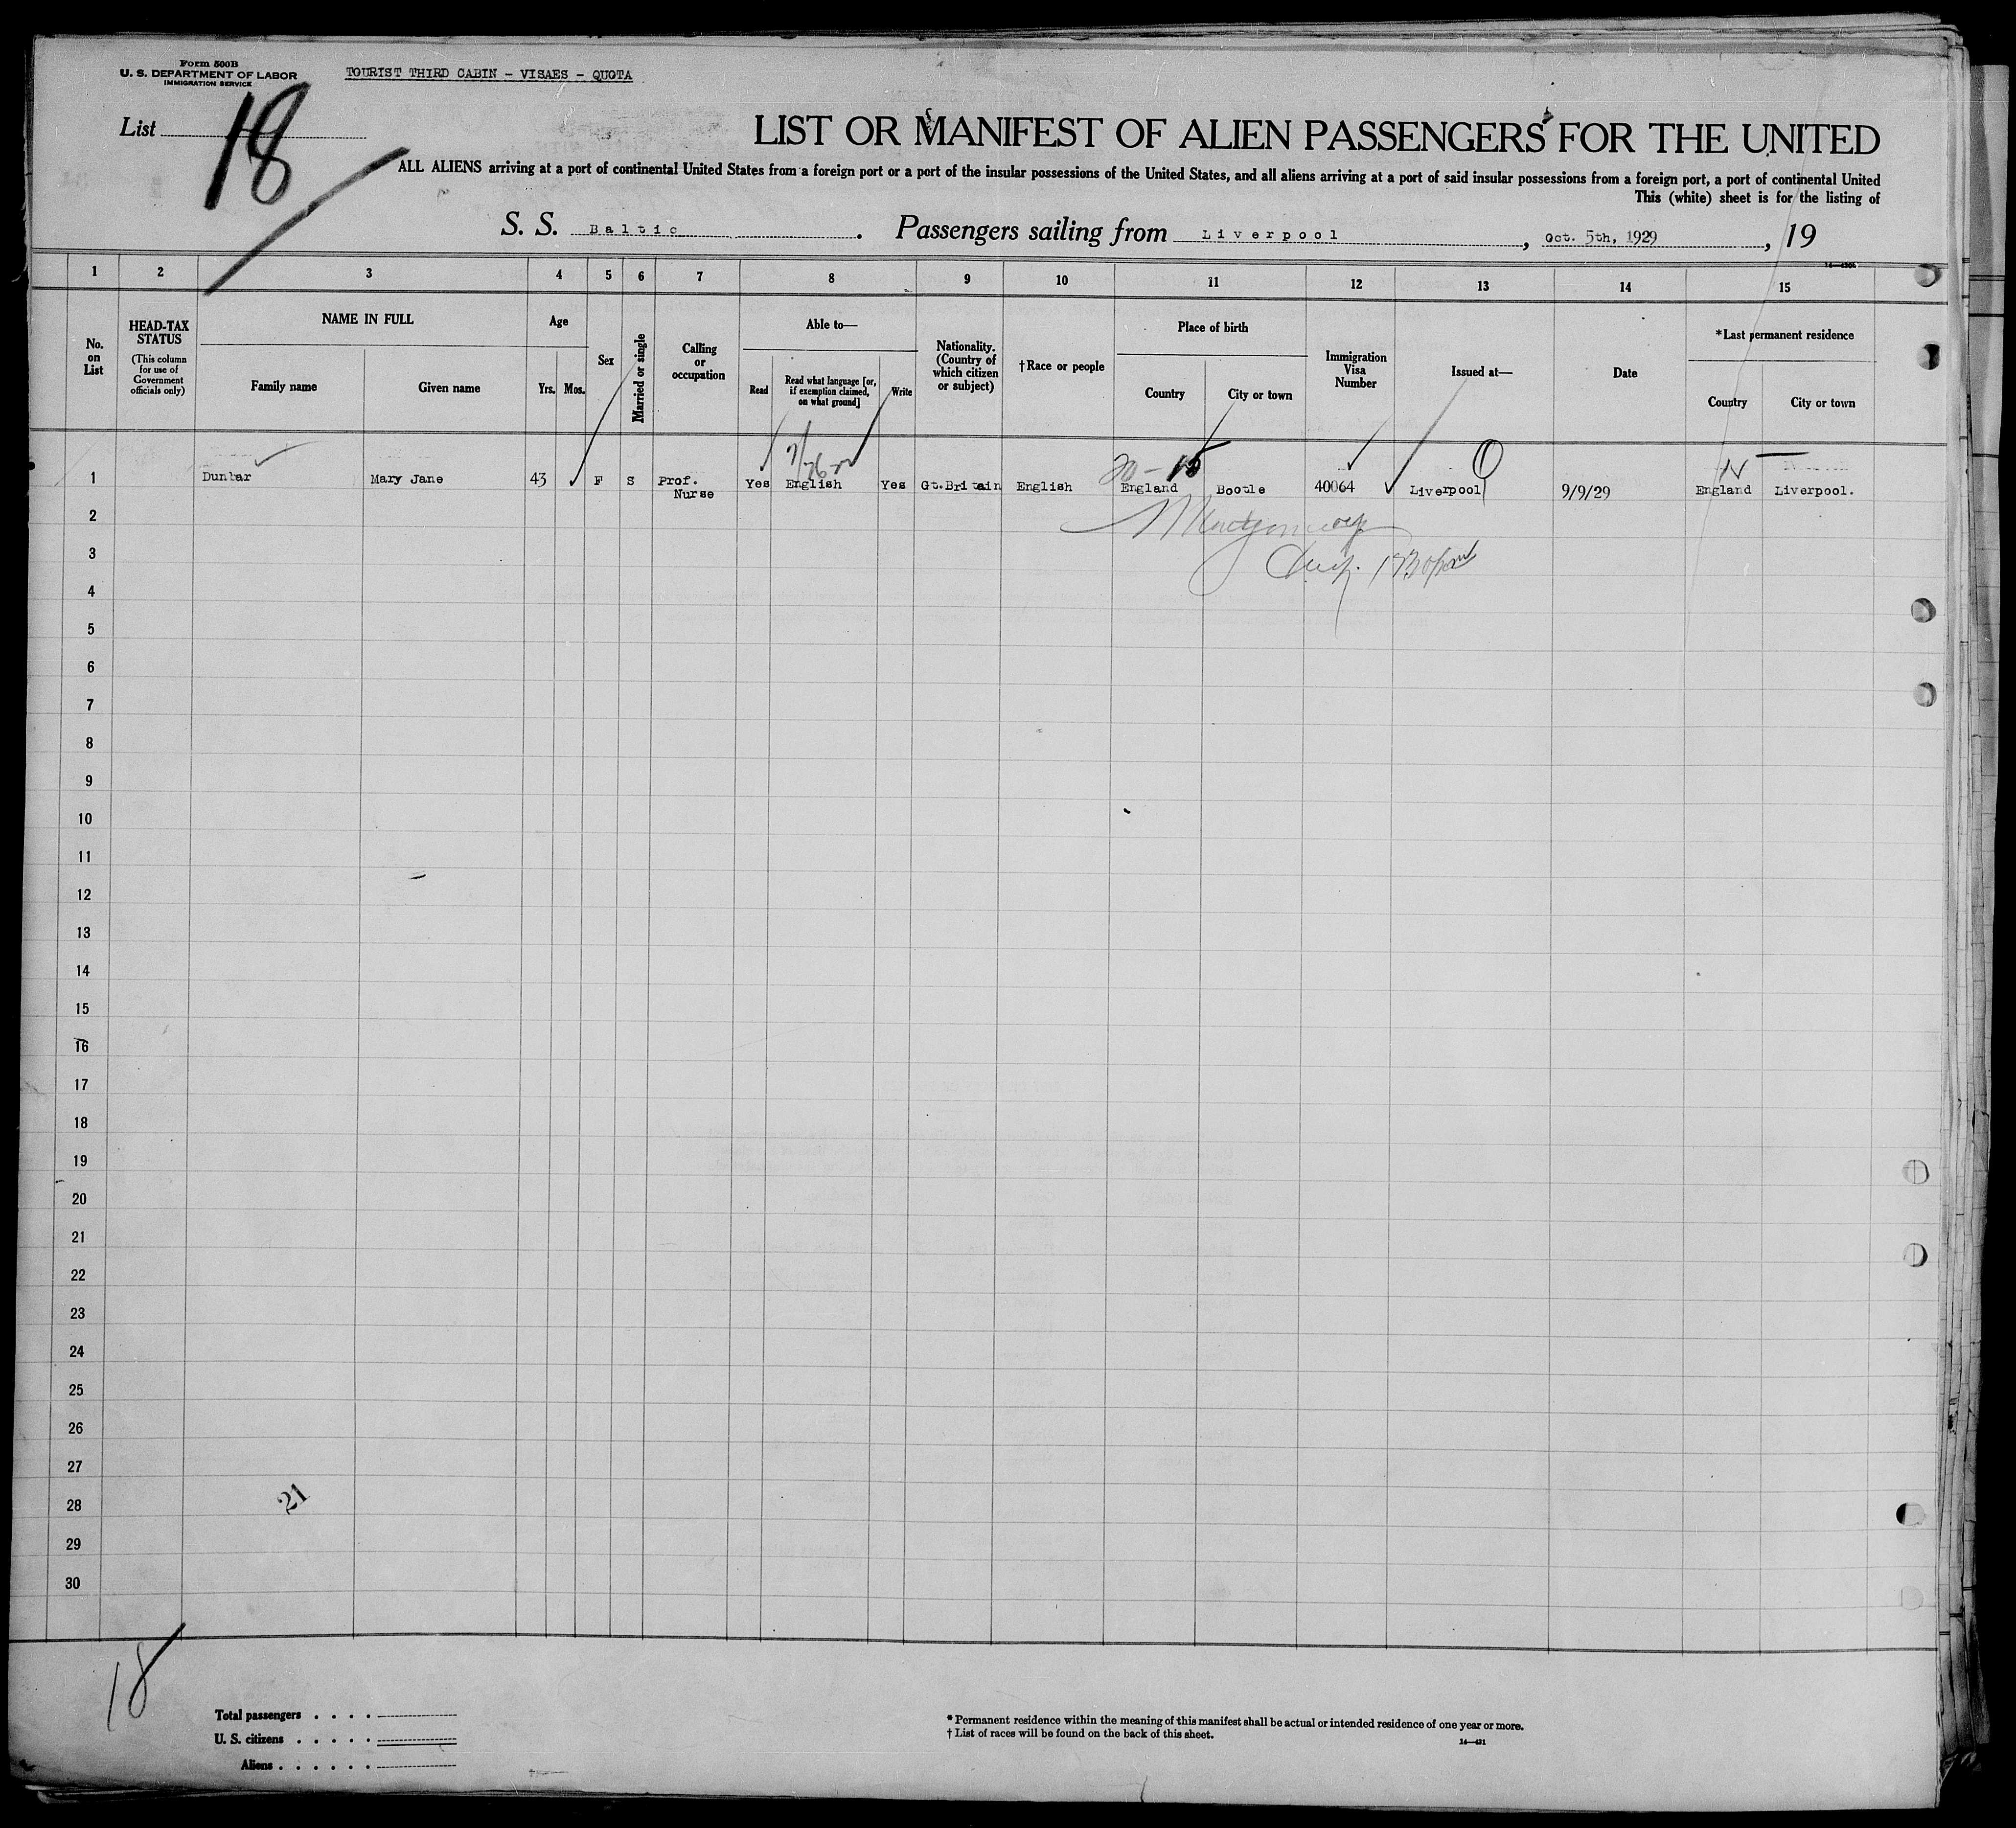 Form 500B
U. S. DEPARTMENT OF LABOR
IMMIGRATION SERVICE
TOURIST THIRD CABIN - VISAES - QUOTA
List 18
LIST OR MANIFEST OF ALIEN PASSENGERS FOR THE UNITED
ALL ALIENS arriving at a port of continental United States from a foreign port or a port of the insular possessions of the United States, and all aliens arriving at a port of said insular possessions from a foreign port, a port of continental United
This (white) sheet is for the listing of
S. S. Baltic. Passengers sailing from Liverpool, Oct. 5th, 1929, 19
1 2 3 4 5 6 7 8 9 10 11 12 13 14 15
No. on List
HEAD-TAX STATUS
(This column for use of Government officials only)
NAME IN FULL
Family name Given name
Age
Yrs. Mos.
Sex
Married or single
Calling or occupation
Able to—
Read
Read what language [or, if exemption claimed, on what ground]
Write
Nationality. (Country of which citizen or subject)
†Race or people
Place of birth
Country City or town
Immigration Visa Number
Issued at—
Date
*Last permanent residence
Country City or town
1 Dunbar Mary Jane 43 F S Prof. Nurse Yes English Yes Gt.Britain English England Bootle 40064 Liverpool 9/9/29 England Liverpool.
2
Montgomery
3
4
5
6
7
8
9
10
11
12
13
14
15
16
17
18
19
20
21
22
23
24
25
26
27
28
21
29
30
18
Total passengers . . . .
U. S. citizens . . . . .
Aliens . . . . . .
* Permanent residence within the meaning of this manifest shall be actual or intended residence of one year or more.
† List of races will be found on the back of this sheet.
14—431